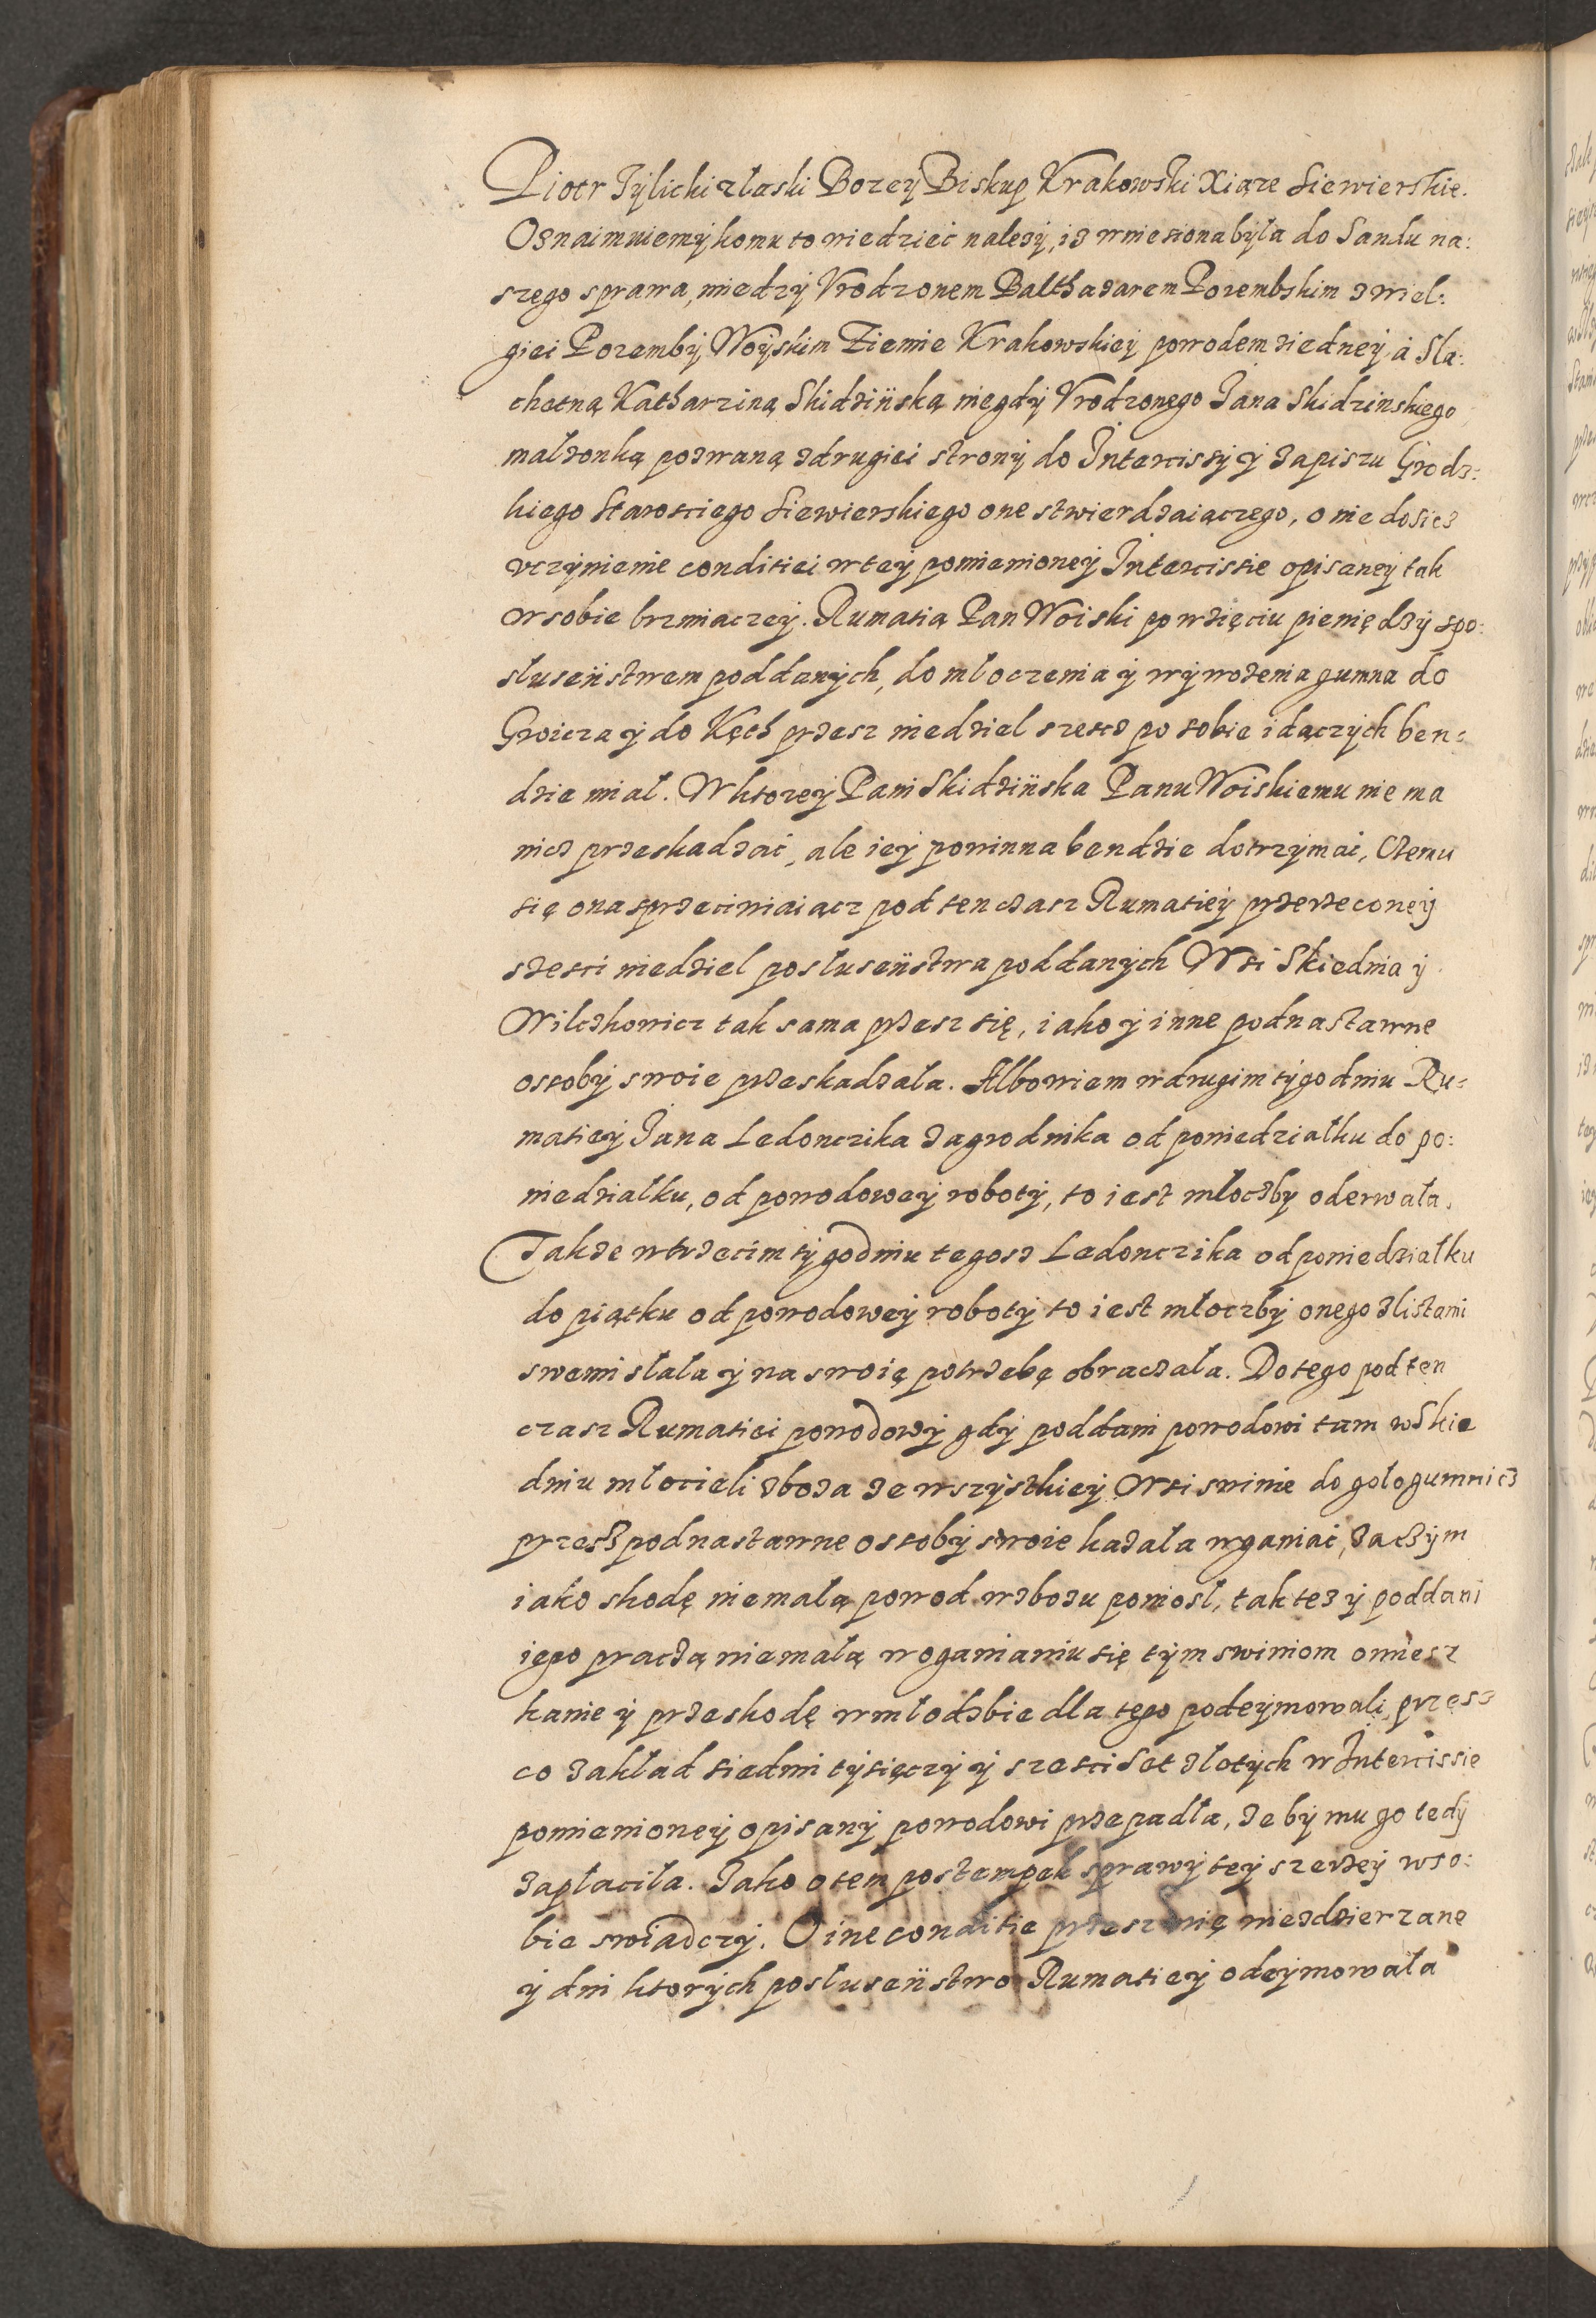 Piotr Tÿlicki z łaski Bozeÿ Biskup Krakowski Xiąze Siewierskie.
Oznaimuiemÿ komu to wiedzieć nalezÿ, iz wniesiona bÿła do Sandu na:
szego sprawa, miedzÿ Vrodzonem Balthazarem Porembskim z wiel:
giei Porembÿ Woÿskim Ziemie Krakowskieÿ powodem ziedneÿ, a Sla:
chetną Katharziną Skidzińską niegdÿ Vrodzonego Jana Skidzinskiego
małzonką pozwaną zdrugiei stronÿ do Intercissÿ ÿ zapiszu Grodz:
kiego Starosciego Siewierskiego one stwierdzaiączego, o nie dosicz
vczÿnienie conditiei w teÿ pomienioneÿ Intercissie opisaneÿ tak
w sobie brzmiaczeÿ. Rumatią Pan Woiski po wzięciu pieniędzÿ spo:
sluseństwem poddanÿch, do mloczenia ÿ wÿwozenia gumna do
Groicza ÿ do Kęth przesz niedziel szescz po sobie idączÿch ben:
dzie mial. W ktoreÿ Pani Skidzińska Panu Woiskiemu nie ma
nicz przeskadzać, ale ieÿ powinna bendzie dotrzÿmać, Czemu
się ona sprzeciwiaiącz pod ten czasz Rumatieÿ przerzeconeÿ
szesci niedziel posłuseństwa poddanÿch Wsi Skiednia ÿ
Wilczkowicz tak sama przesz się, iako ÿ inne podnastawne
ossobÿ swoie przeskadzała. Albowiem w drugim tÿgodniu Ru:
matieÿ Jana Ledonczika zagrodnika od poniedziałku do po:
niedziałku, od powodoweÿ robotÿ, to iest młoczby oderwała.
Takze w trzecim tÿgodniu tegosz Ledonczika od poniedziałku
do piątku od powodoweÿ robotÿ to iest młoczbÿ onego z listami
swemi słała ÿ na swoię potrzebę obraczała. Do tego pod ten
czasz Rumatiei powodowÿ gdÿ poddani powodowi tam w Skie
dniu młocieli zboza ze wszÿstkieÿ Wsi swinie do gołogumnicz
przesz podnastawne ossobÿ swoie kazała wganiać, zaczÿm
iako skodę niemałą powod w zbozu poniosł, tak tez ÿ poddani
iego praczą niemałą w oganianiu się tÿm swiniom omiesz
kanie ÿ przeskodę w młodzbie dla tego podeÿmowali, przesz
co zakład siedmi tÿsięczÿ ÿ szesci Set złotÿch w Intercissie
pomienioneÿ opisanÿ powodowi przepadła, ze bÿ mu go tedÿ
zapłaciła. Jako o tem postempek sprawÿ teÿ szerzeÿ w so:
bie swiadczÿ. O ine conditie przesz nię niezdzierzane
ÿ dni ktorÿch posłuseństwo Rumatieÿ odeÿmowała